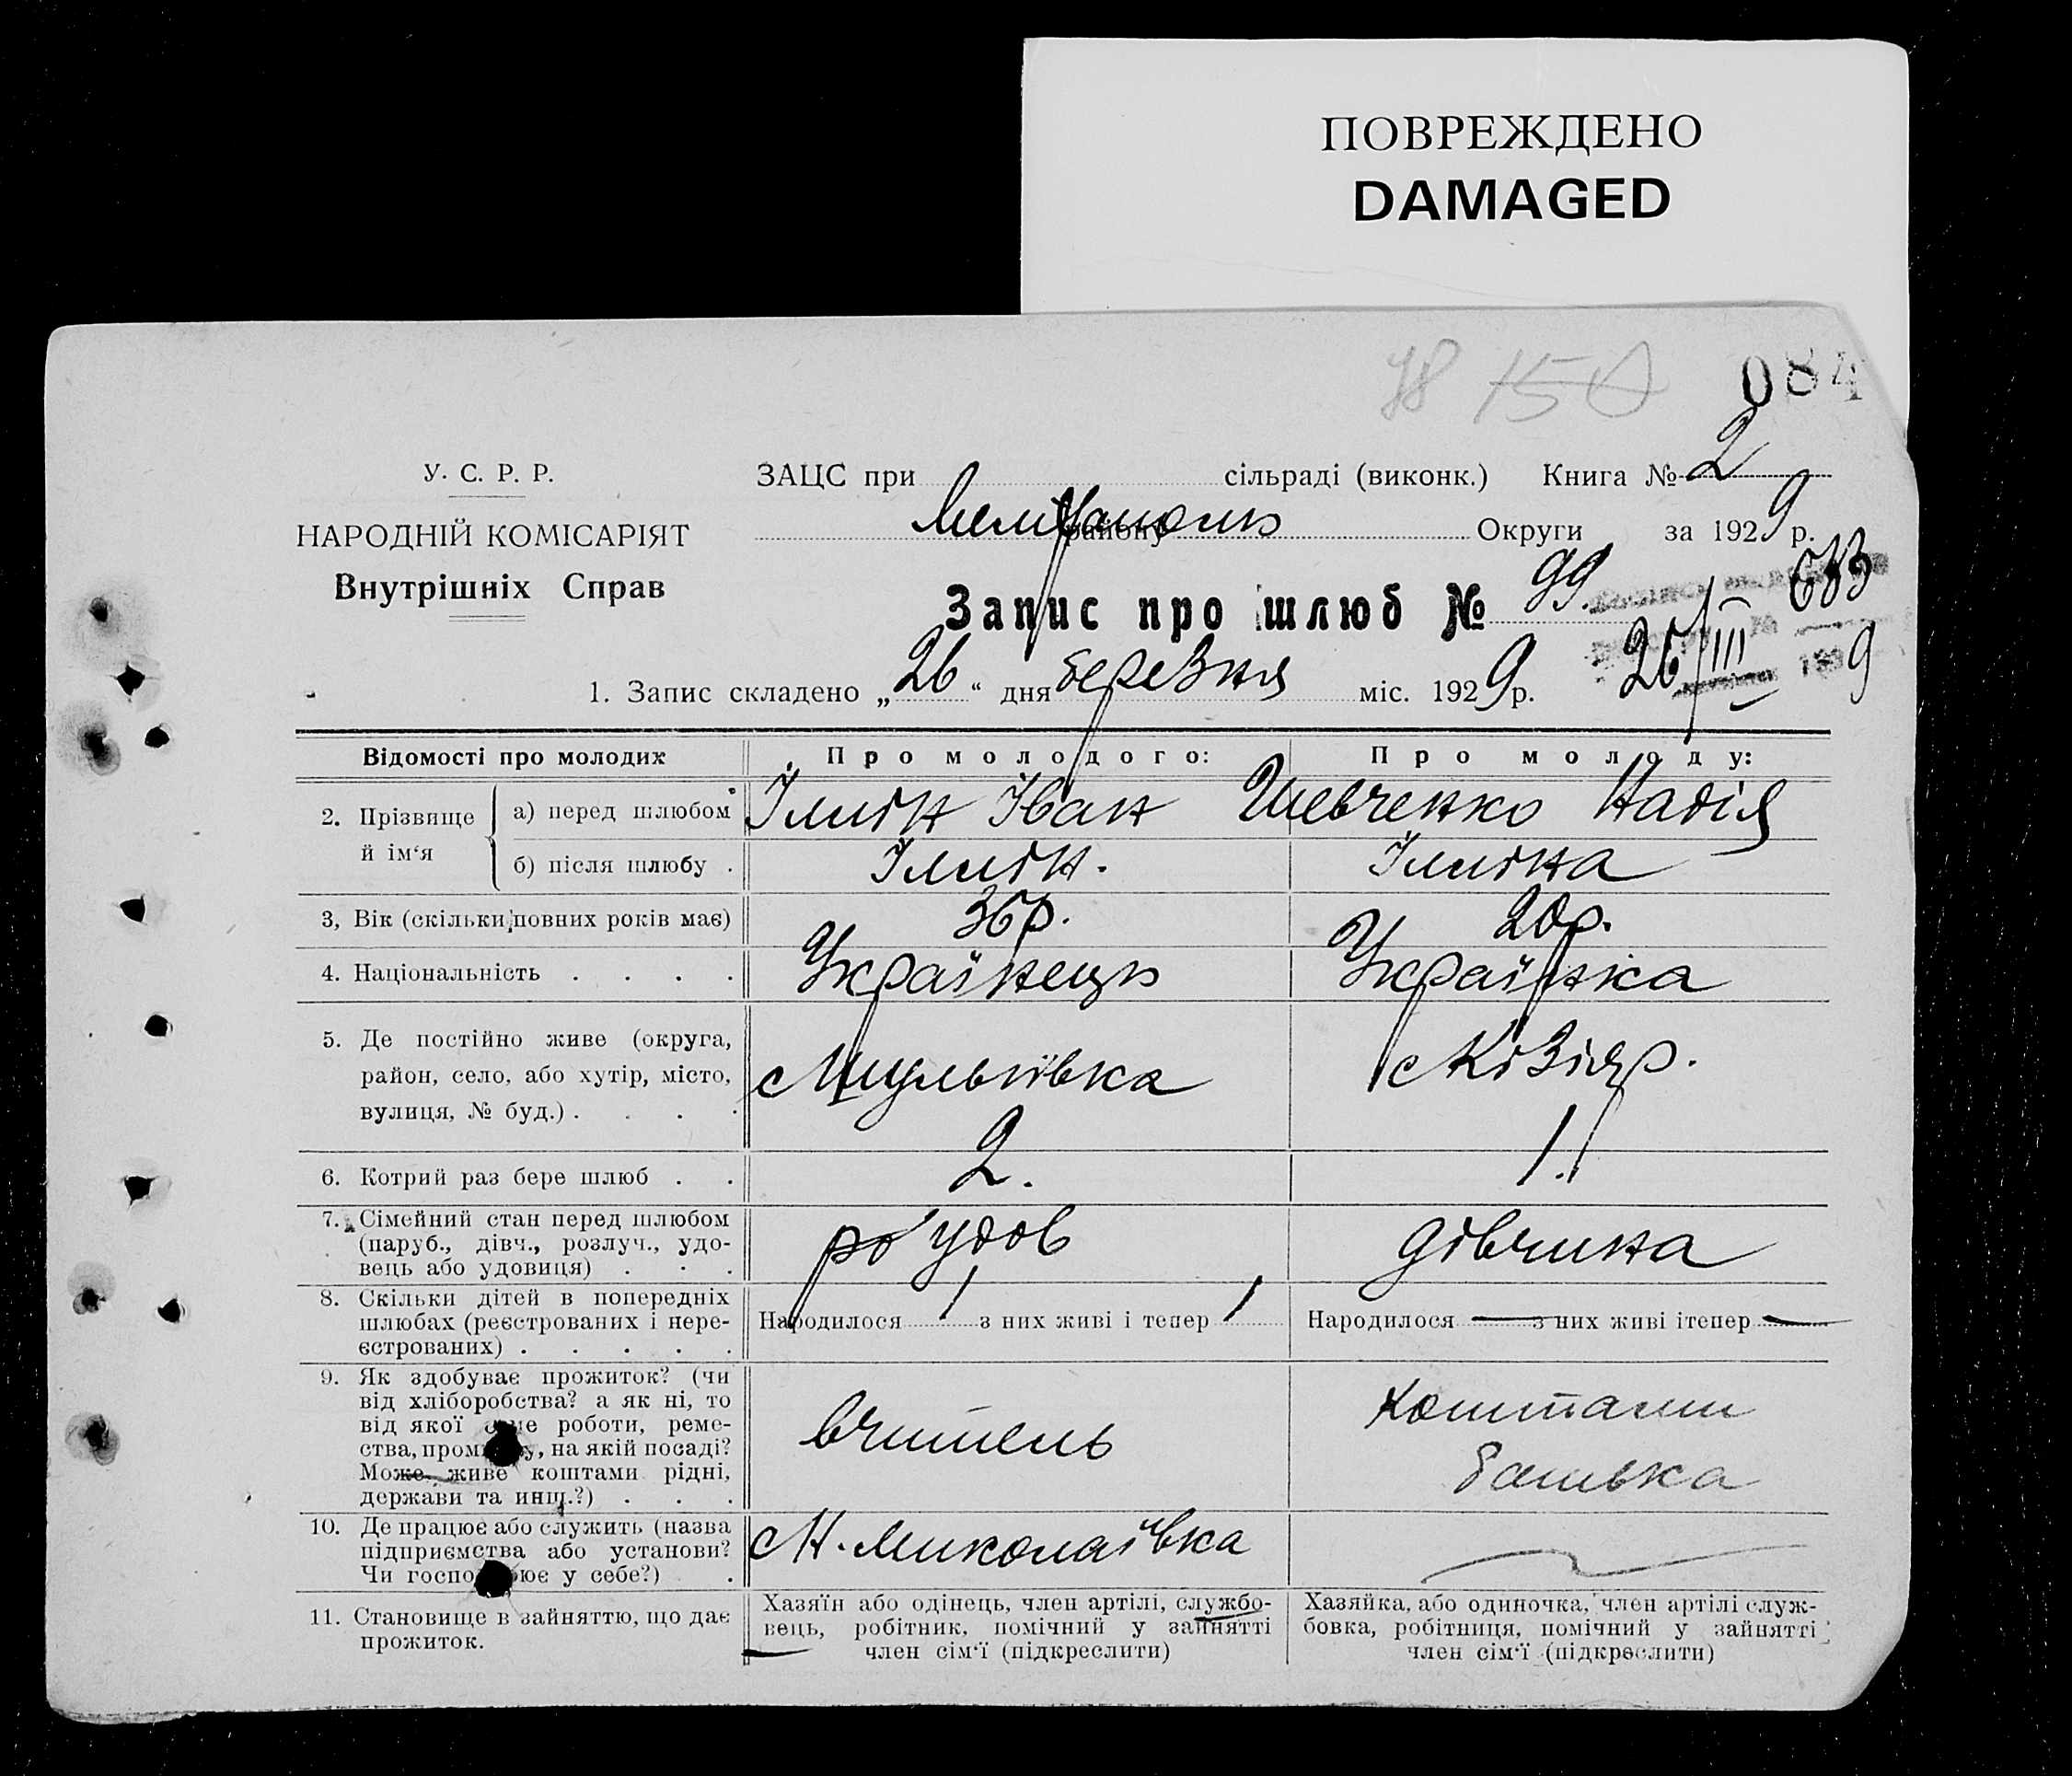 ПОВРЕЖДЕНО
DAMAGED
78 150 084
У. С. Р. Р.
НАРОДНІЙ КОМІСАРІЯТ
Внутрішніх Справ
ЗАЦС при сільраді (виконк.) Книга № 2
району Округи за 1929 р.
Запис про шлюб № 99
26/III 9
1. Запис складено „26“ дня березня міс. 1929 р.
Відомості про молодих Про молодого: Про молоду:
2. Прізвище й ім‘я
а) перед шлюбом Ілиін Іван Шевченко Надія
б) після шлюбу . Ілиін. Ілиіна
3, Вік (скільки повних років має) 36 р. 20 р.
4. Національність . . . . Українець Українка
5. Де постійно живе (округа,
район, село, або хутір, місто,
вулиця, № буд.) . . . .
с Кізіяр.
6. Котрий раз бере шлюб . . 2. 1.
7. Сімейний стан перед шлюбом
(паруб., дівч., розлуч., удо-
вець або удовиця) . . .
ро удов дівчина
8. Скільки дітей в попередніх
шлюбах (реєстрованих і нере-
єстрованих) . . . . .
Народилося 1 з них живі і тепер 1
Народилося — з них живі і тепер —
9. Як здобуває прожиток? (чи
від хліборобства? а як ні, то
від якої роботи, реме-
ства, на якій посаді?
Може, живе коштами рідні,
держави та инш.?) . . .
вчитель
коштами
батька
10. Де працює або служить (назва
підприємства або установи?
Чи у себе?) .
с Н. Миколаївка
—
11. Становище в зайняттю, що дає
прожиток.
Хазяїн або одінець, член артілі, службо-
вець, робітник, помічний у зайнятті
член сім‘ї (підкреслити)
Хазяйка, або одиночка, член артілі служ-
бовка, робітниця, помічний у зайнятті
член сім‘ї (підкреслити)